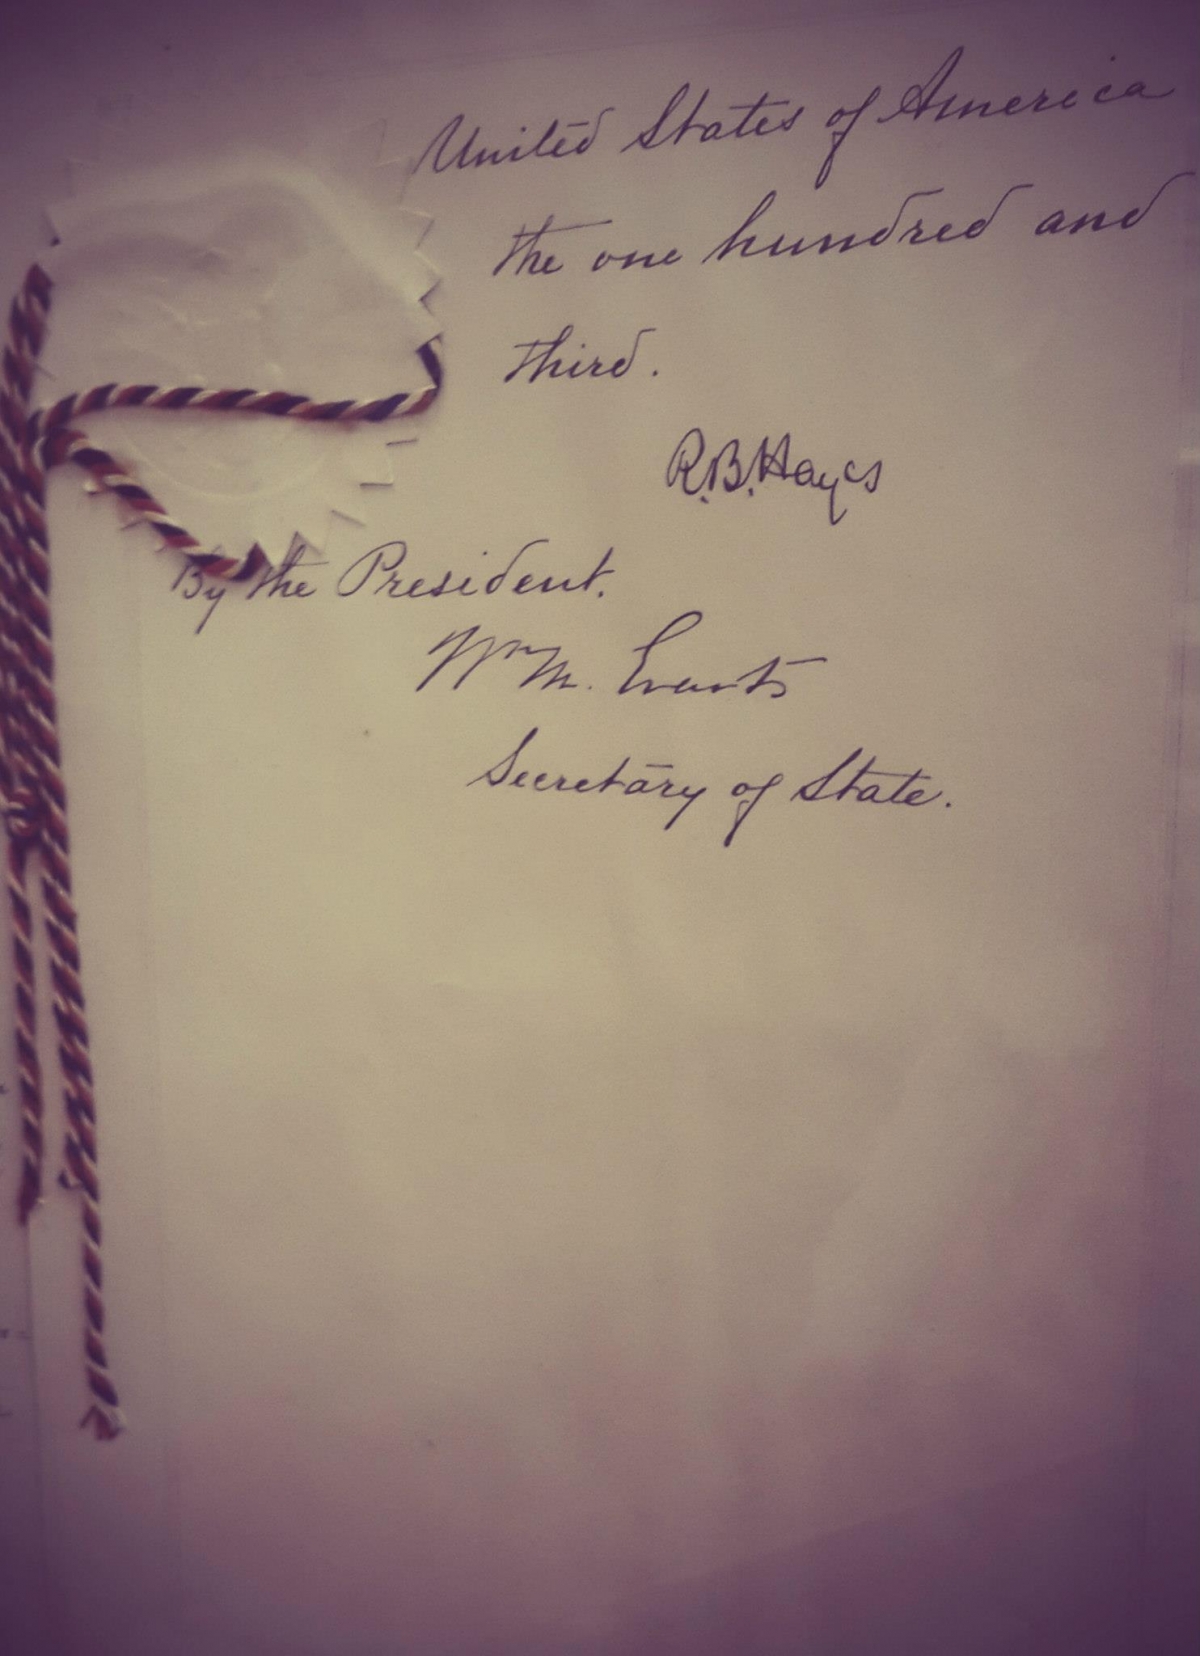 United States of America
the one hundred and
third.
R.B. Hayes
By the President.
Wm M. Evarts
Secretary of State.